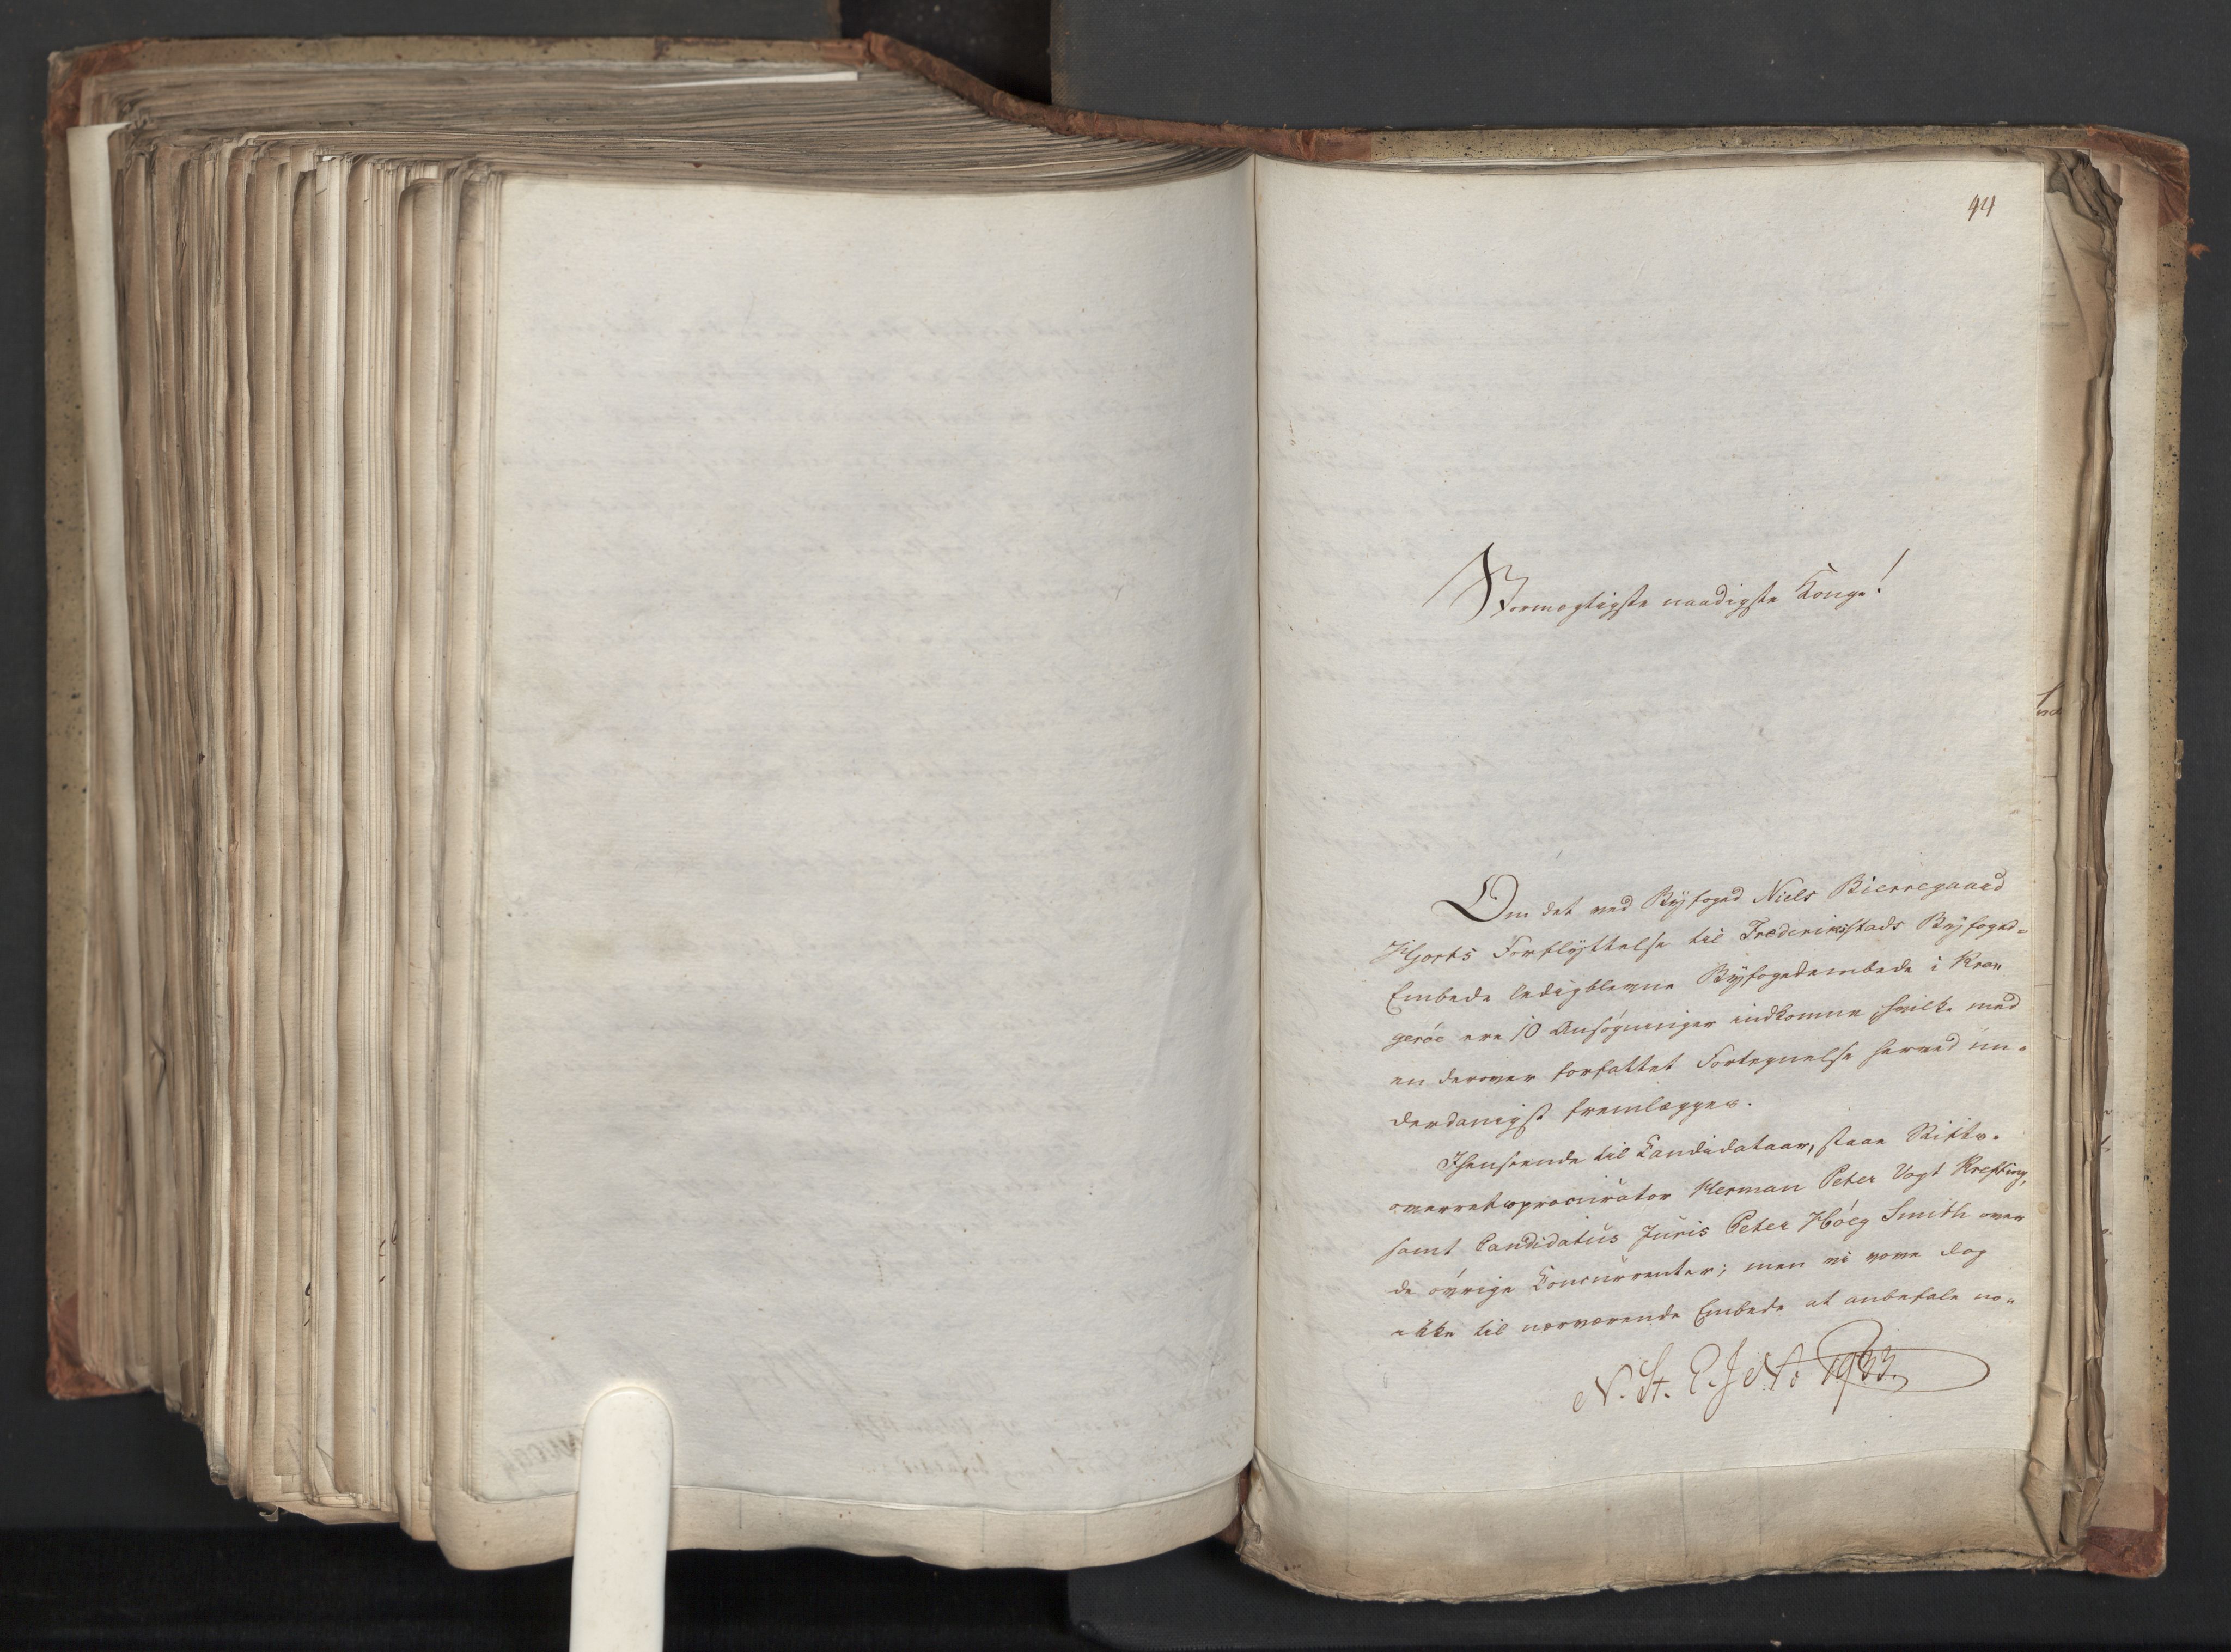 44
Stormægtigste naadigste Konge!
Om det ved Byfoged Niels Bierregaard
Hjorts Forflyttelse til Frederiksstads Byfoged-
Embede ledigblevne Byfogedembede i Kra-
gerøe ere 10 Ansøgninger indkomne hvilke med
en derover forfattet Fortegnelse herved un-
derdanigst fremlægges.
I Henseende til Candidataar, staae Stifts-
overretsprocurator Herman Peter Vogt Krefting,
samt Candidatus Juris Peter Høeg Smith over
de øvrige Concurrenter; men vi vove dog
ikke til nærværende Embede at anbefale no-
N. St. E. J No 1933.